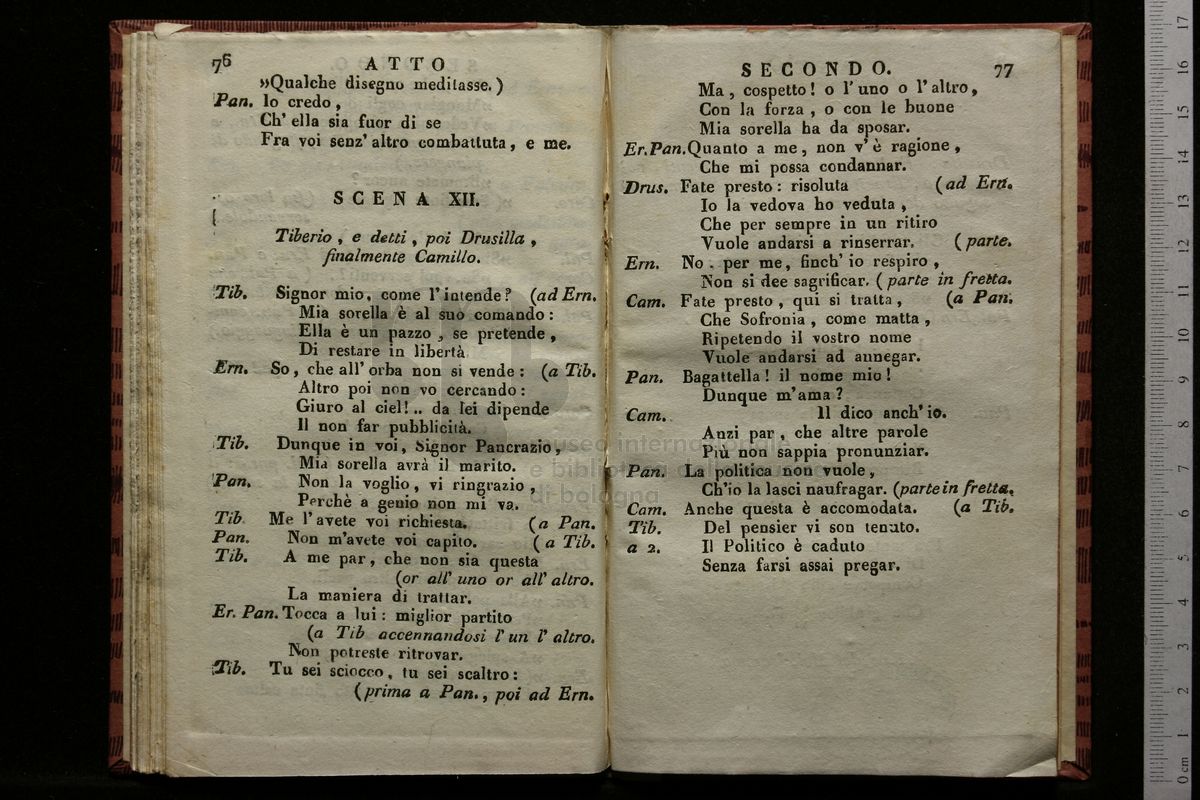 76 ATTO
»Qualche disegno meditasse.)
Pan. Io credo,
Ch' ella sia fuor di se
Fra voi senz' altro combattuta, e me.
SCENA XII.
Tiberio, e detti, poi Drusilla,
finalmente Camillo.
Tib. Signor mio, come l'intende? (ad Ern.
Mia sorella è al suo comando:
Ella è un pazzo, se pretende,
Di restare in libertà
Ern. So, che all' orba non si vende: (a Tib.
Altro poi non vo cercando:
Giuro al ciel!.. da lei dipende
Il non far pubblicità.
Tib. Dunque in voi, Signor Pancrazio,
Mia sorella avrà il marito.
Pan. Non la voglio, vi ringrazio,
Perchè a genio non mi va.
Tib Me l'avete voi richiesta. (a Pan.
Pan. Non m'avete voi capito. (a Tib.
Tib. A me par, che non sia questa
(or all' uno or all' altro.
La maniera di trattar.
Er. Pan. Tocca a lui: miglior partito
(a Tib accennandosi l'un l'altro.
Non potreste ritrovar.
Tib. Tu sei sciocco, tu sei scaltro:
(prima a Pan., poi ad Ern.
SECONDO. 77
Ma, cospetto! o l'uno o l'altro,
Con la forza, o con le buone
Mia sorella ha da sposar.
Er. Pan. Quanto a me, non v'è ragione,
Che mi possa condannar.
Drus. Fate presto: risoluta (ad Ern.
Io la vedova ho veduta,
Che per sempre in un ritiro
Vuole andarsi a rinserrar. (parte.
Ern. No. per me, finch' io respiro,
Non si dee sagrificar. (parte in fretta.
Cam. Fate presto, qui si tratta, (a Pan.
Che Sofronia, come matta,
Ripetendo il vostro nome
Vuole andarsi ad annegar.
Pan. Bagattella! il nome mio!
Dunque m'ama?
Cam. Il dico anch' io.
Anzi par, che altre parole
Più non sappia pronunziar.
Pan. La politica non vuole,
Ch'io la lasci naufragar. (parte in fretta.
Cam. Anche questa è accomodata. (a Tib.
Tib. Del pensier vi son tenuto.
a 2. Il Politico è caduto
Senza farsi assai pregar.
museo internazionale
e biblioteca della musica
di bologna
0 cm 1 2 3 4 5 6 7 8 9 10 11 12 13 14 15 16 17